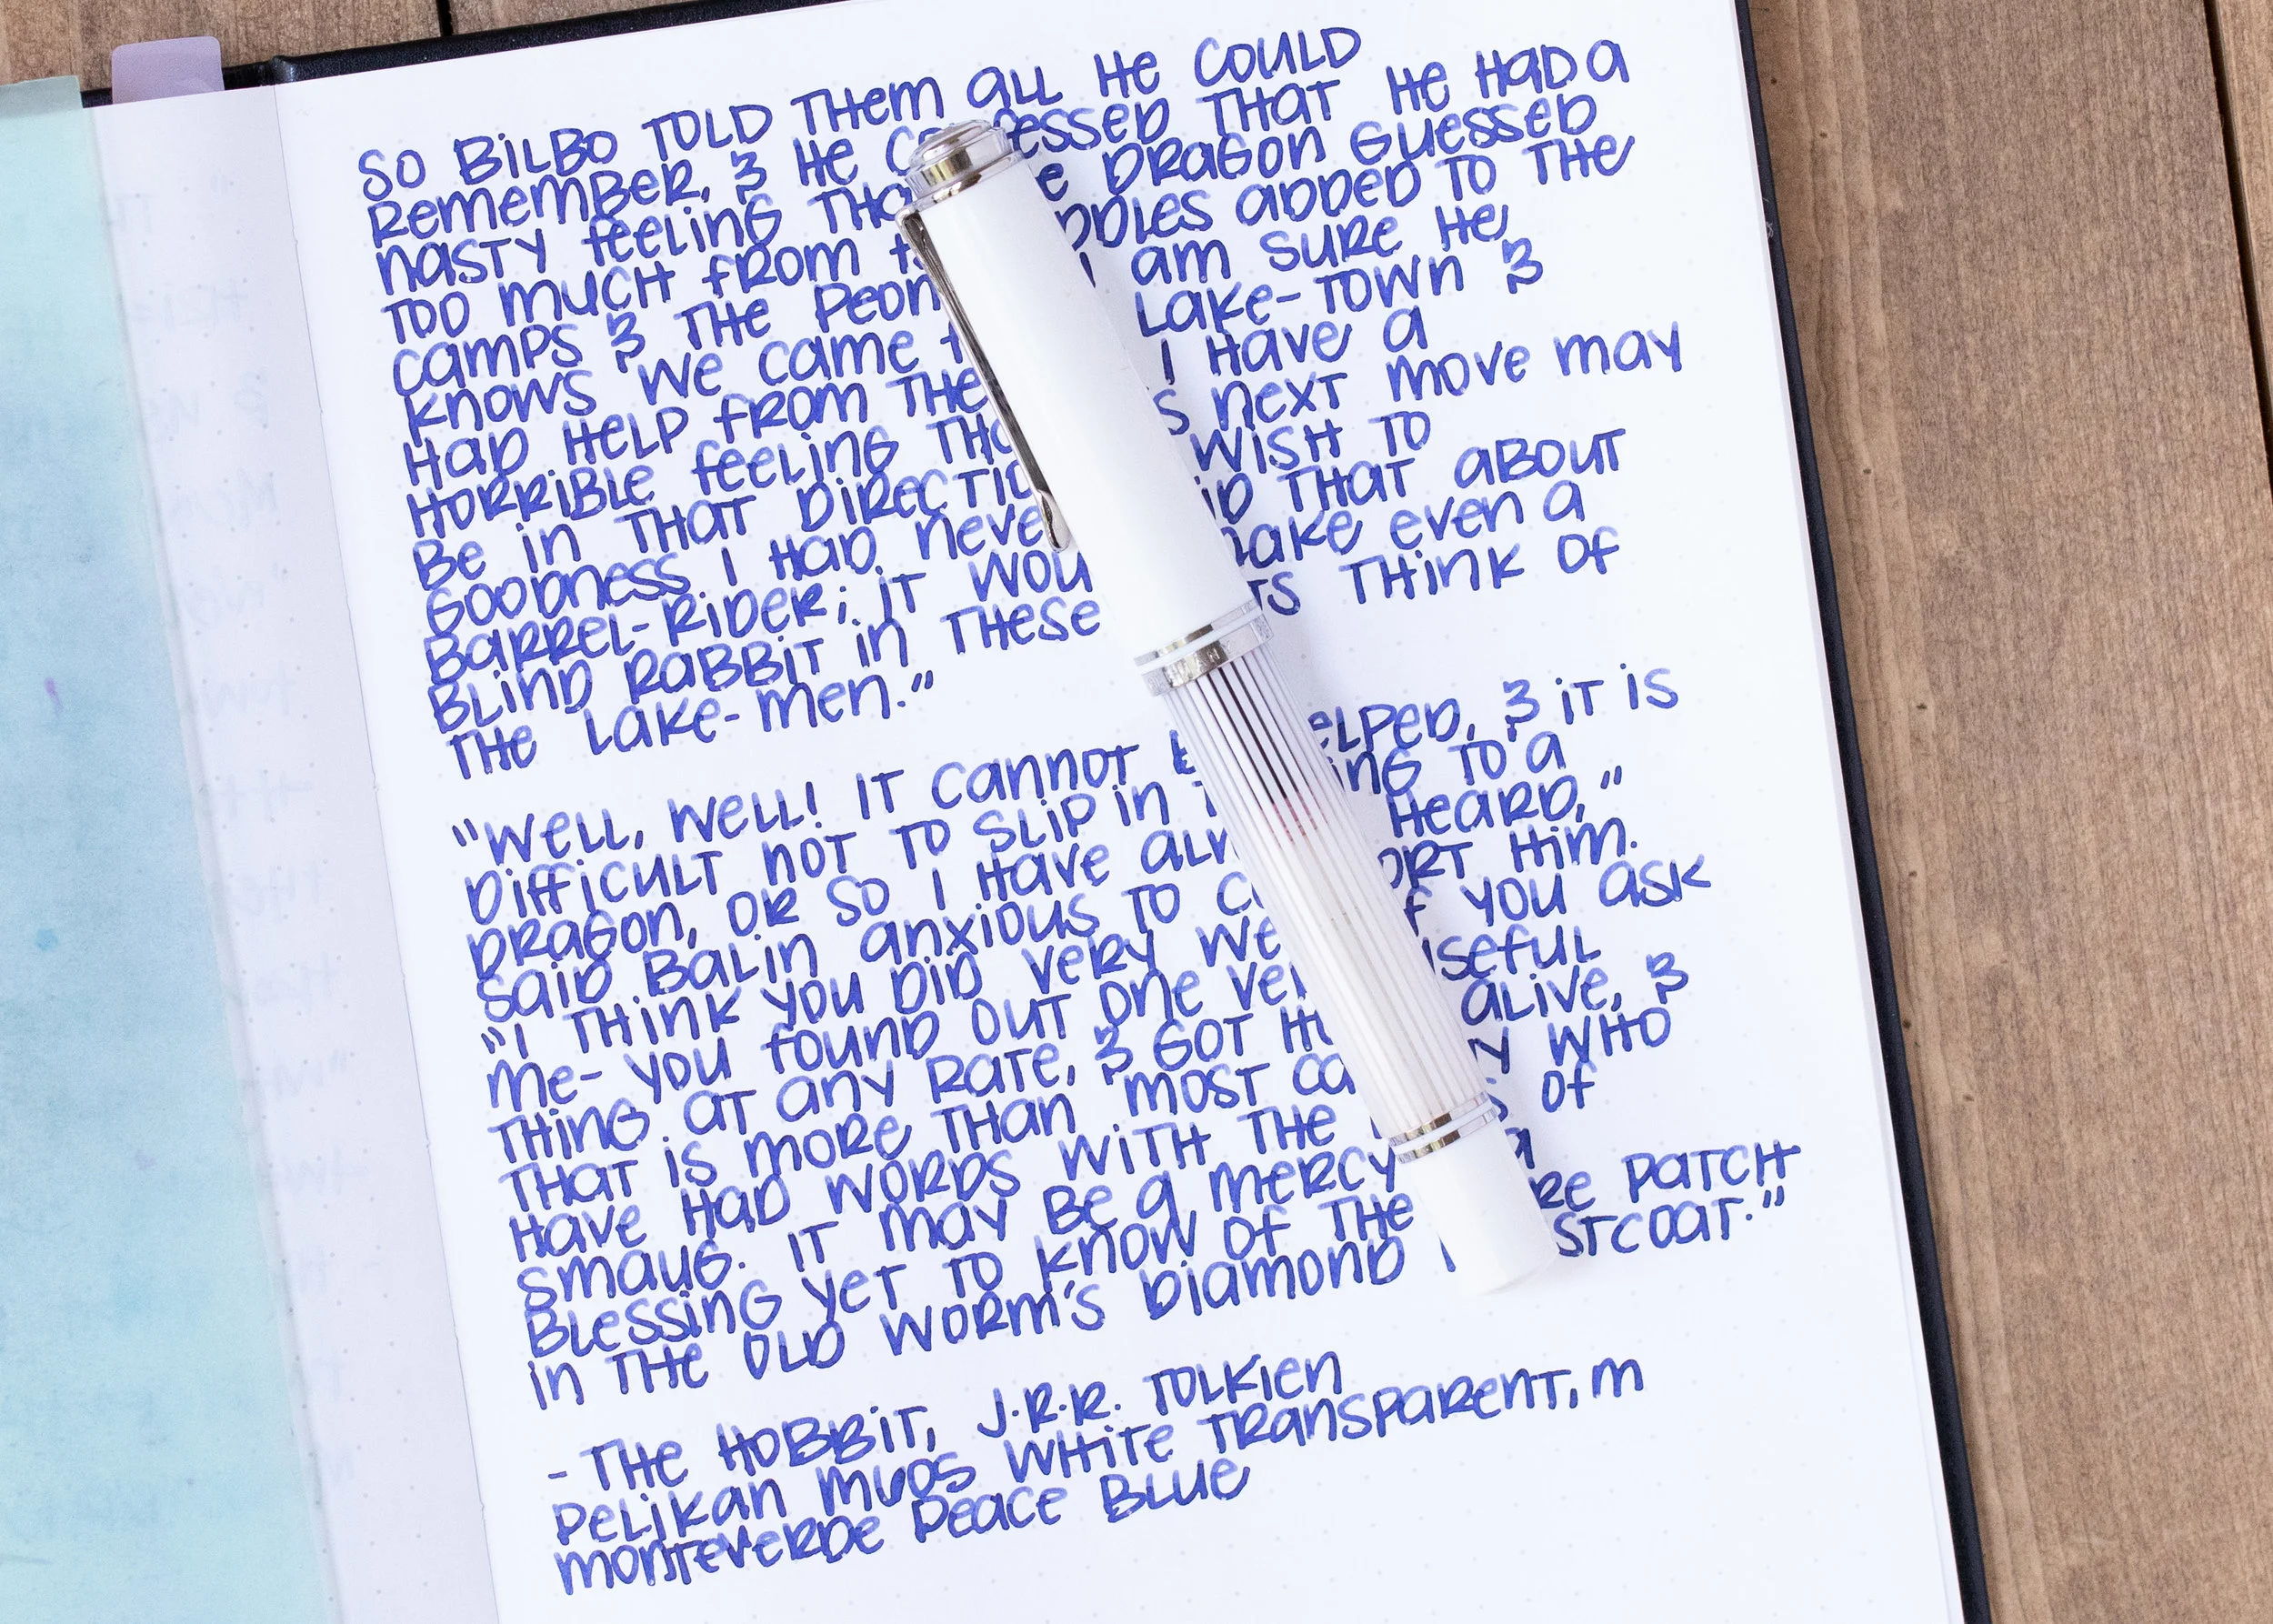 So Bilbo told them all he could
remember, & he confessed that he had a
nasty feeling that the dragon guessed
too much from added to the
camps & the I am sure he
knows we came Lake-town &
had help from I have a
horrible feeling next move may
be in that direction wish to
goodness I had never that about
barrel-rider; it make even a
blind rabbit in these think of
the Lake-men."
"Well, well! It cannot helped, & it is
difficult not to slip in to a
dragon, or so I have heard,"
said Balin anxious to comfort him.
"I think you did very you ask
me- you found out one useful
thing at any rate, & got alive, &
that is more than most who
have had words with the of
Smaug. It may be a mercy a
blessing yet to know of the patch
in the old Worm's diamond waistcoat."
- The Hobbit, J.R.R. Tolkien
Pelikan M605 White Transparent, M
Monteverde Peace Blue